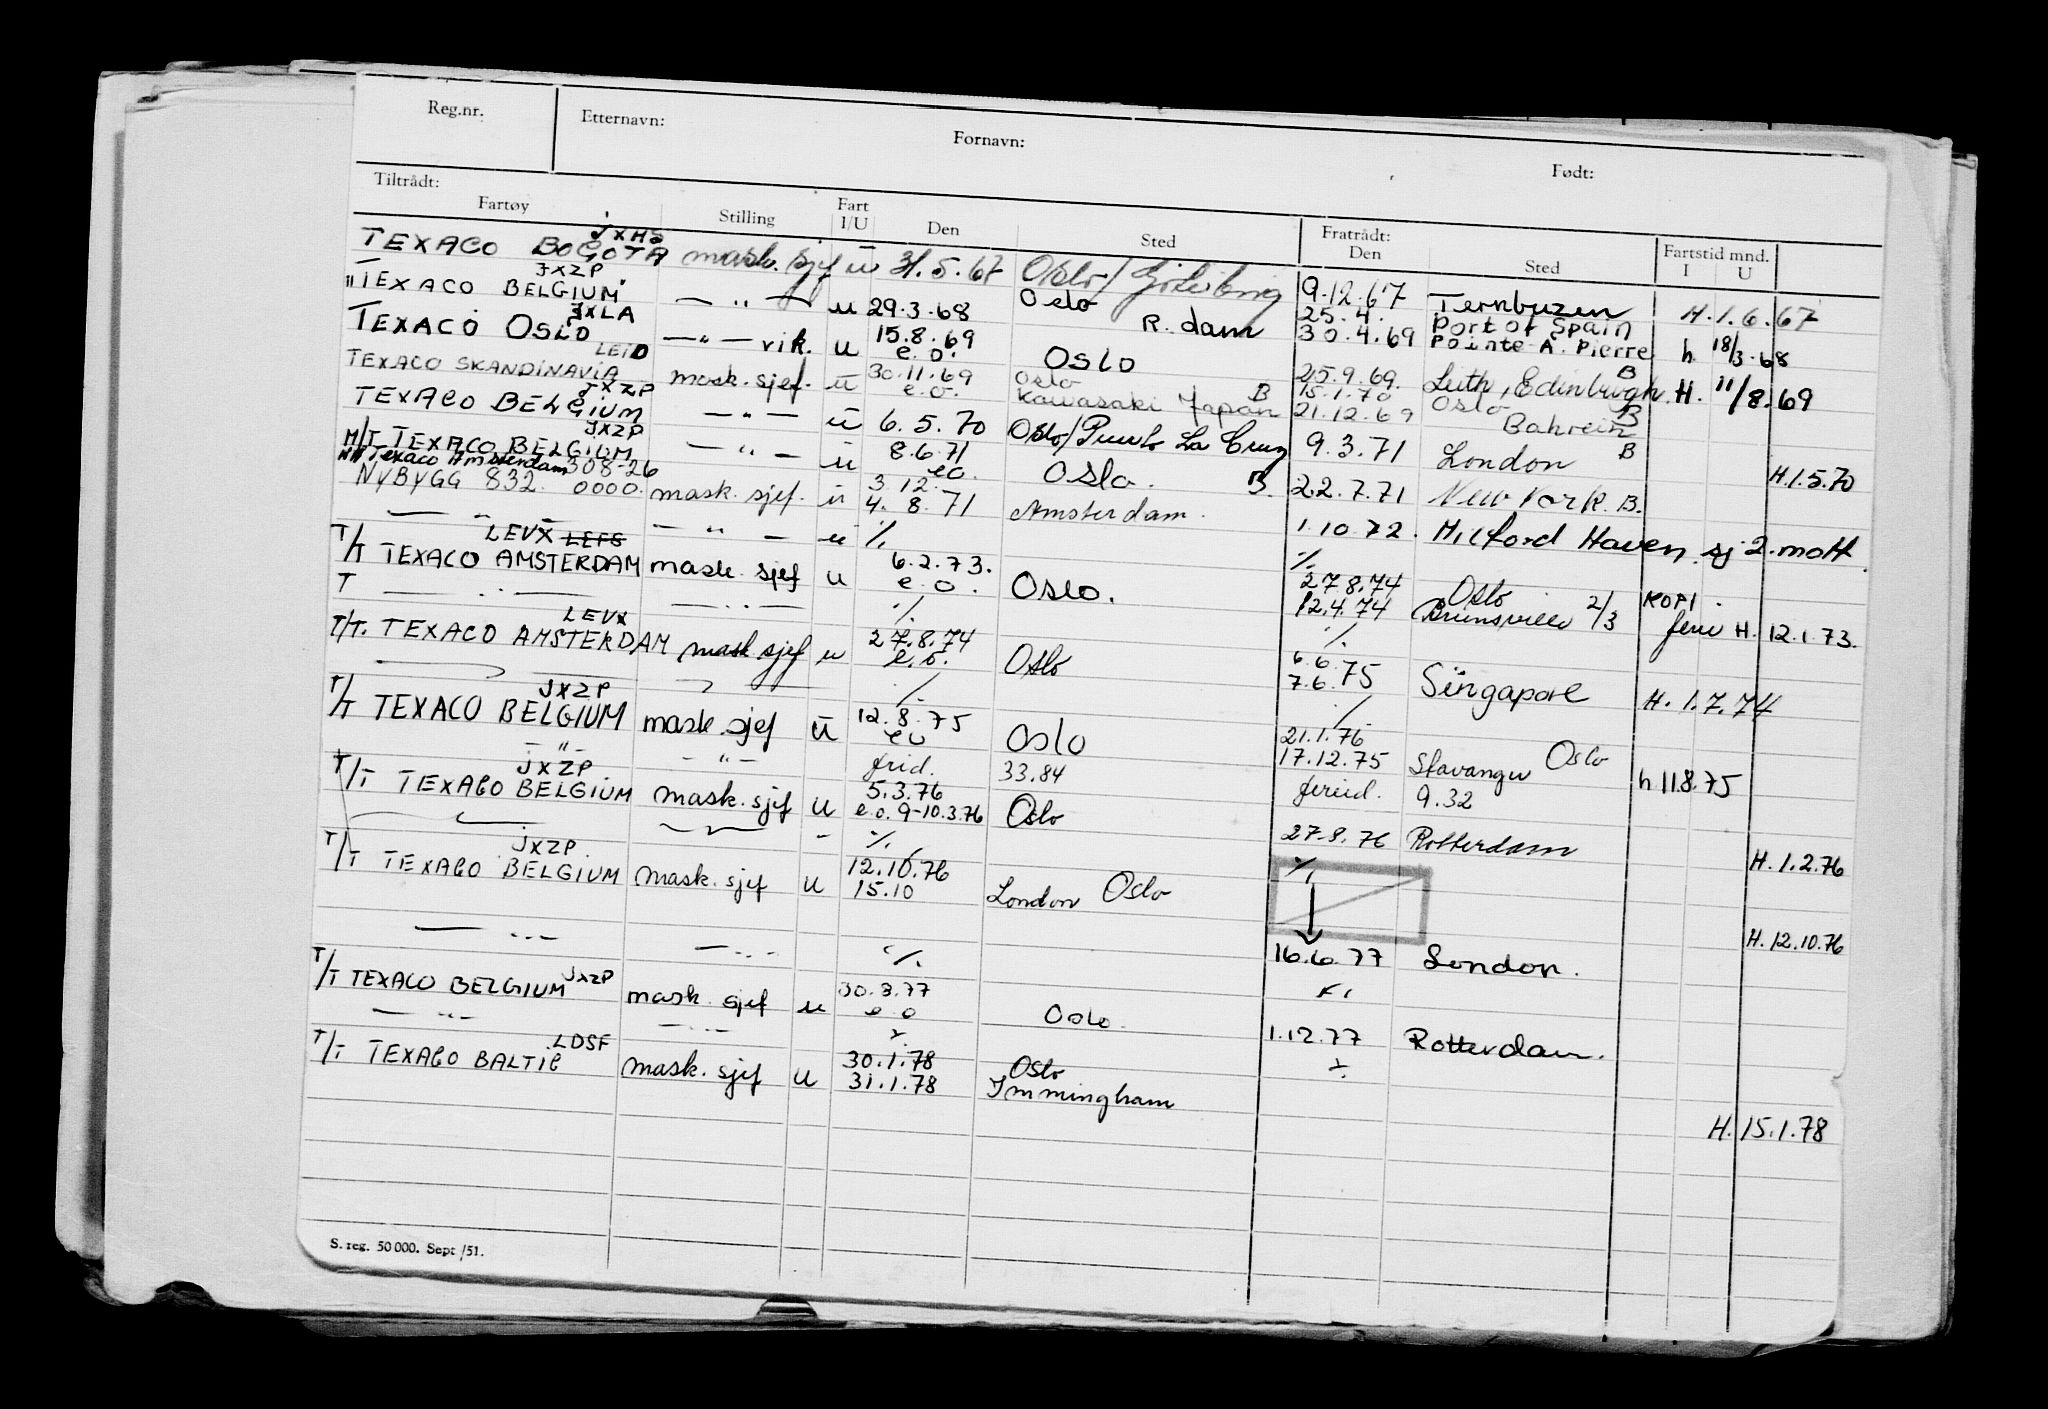 Reg.nr. Etternavn: Fornavn: Født:
Tiltrådt: Fratrådt:
Fartøy Stilling Fart I/U Den Sted Den Sted Fartstid mnd. I U
JXHS
TEXACO BOGOTA mask. sjef u 31.5.67 Oslo/Göteborg 9.12.67 Ternbuzen H. 1.6.67
JXZP
TEXACO BELGIUM — " — u 29.3.68 Oslo R. dam 25.4. 30.4.69 Port of Spain Pointe-A. Pierre h. 18/3-68
JXLA
TEXACO OSLO — " — vik. u 15.8.69 e.o. OSLO 25.9.69. Leith, Edinburgh B H. 11/8.69
TEXACO SKANDINAVIA mask. sjef. u 30.11.69 e.o. Oslo Kawasaki Japan B 15.1.70 21.12.69 Oslo Bahrein B
JXZP
TEXACO BELGIUM — " — u 6.5.70 Oslo/Puerto La Cruz 9.3.71 London B H.1.5.70
JXZP
M/T TEXACO BELGIUM — " — u 8.6.71 eo. Oslo. B. 22.7.71 New York. B.
Texaco Amsterdam 308-26
NYBYGG 832. 0000. mask. sjef. u 3 12. 4. 8. 71 Amsterdam. 1.10.72. Milford Haven. sj 2. mott.
— " — — " — u %
LEVX LEFG
T/T TEXACO AMSTERDAM mask. sjef u 6.2.73. e.o. Oslo. 27.8.74 12.4.74 Oslo Brunsville 2/3 KOPI. ferie H. 12.1.73.
T — .. — — .. — %
LEVX
T/T. TEXACO AMSTERDAM mask sjef u 27.8.74 e.o. Oslo 6.6. 7.6.75 Singapore H. 1.7.74
JXZP
T/T TEXACO BELGIUM mask. sjef u 12.8.75 eo Oslo 21.1.76 17.12.75 Stavanger Oslo h 11.8.75
— " — — " — frid. 33.84 feried. 9.32
JXZP
T/T TEXACO BELGIUM mask. sjef u 5.3.76 e.o. 9-10.3.76 Oslo 27.8.76 Rotterdam H. 1.2.76
JXZP
T/T TEXACO BELGIUM mask. sjef u 12.10.76 15.10 London Oslo H. 12.10.76
— .. — — .. — % 16.6.77 London.
T/T TEXACO BELGIUM JXZP mask. sjef u 30.3.77 e.o Oslo. 1.12.77 Rotterdam.
LDSF
T/T TEXACO BALTIC mask. sjef u 30.1.78 31.1.78 Oslo Immingham H. 15.1.78
S. reg. 50 000. Sept /51.